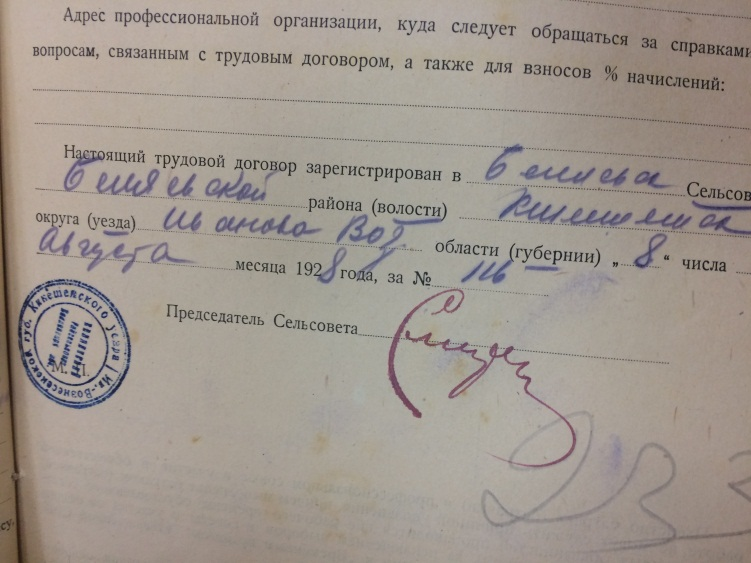 Адрес профессиональной организации, куда следует обращаться за справками
вопросам, связанным с трудовым договором, а также для взносов % начислений:
Настоящий трудовой договор зарегистрирован в Сельсов
района (волости)
округа (уезда) Иваново Воз области (губернии) „ 8 “ числа
Августа месяца 1928 года, за № 116
Председатель Сельсовета
Ив.-Вознесенской губ. Кинешемского уезда
М. П.
233